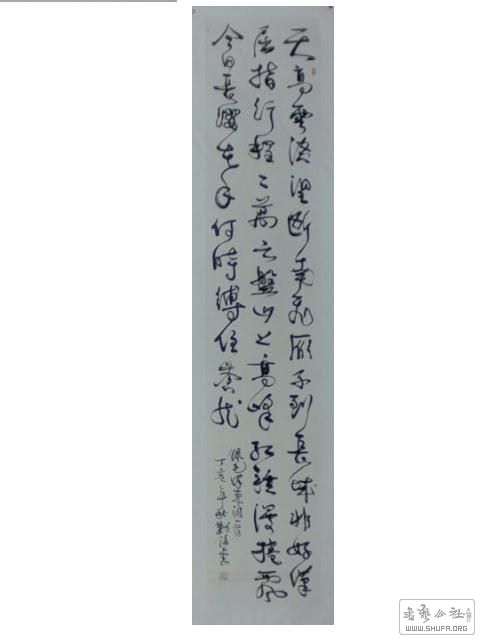 天高雲淡望断南飛雁不到長城非好漢
屈指行程二萬六盤山上高峰紅旗漫捲西風
今日長纓在手何時縛住蒼龍
錄毛澤東詞一首
丁亥年秋
书艺公社
WWW.SHUFA.ORG